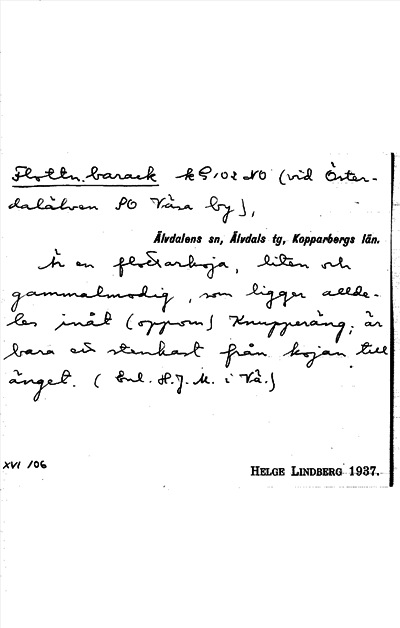 Flottn.barack k 9102 NO (vid Öster-
dalälven SO Våsa by),
Älvdalens sn, Älvdals tg, Kopparbergs län.
Är en flottarkoja, liten och
gammalmodig, som ligger allde-
les inåt (oppom) Knupperäng; är
bara ett stenkast från kojan till
änget. (Enl. H.J.M. i Vå.)
XVI 106
HELGE LINDBERG 1937.